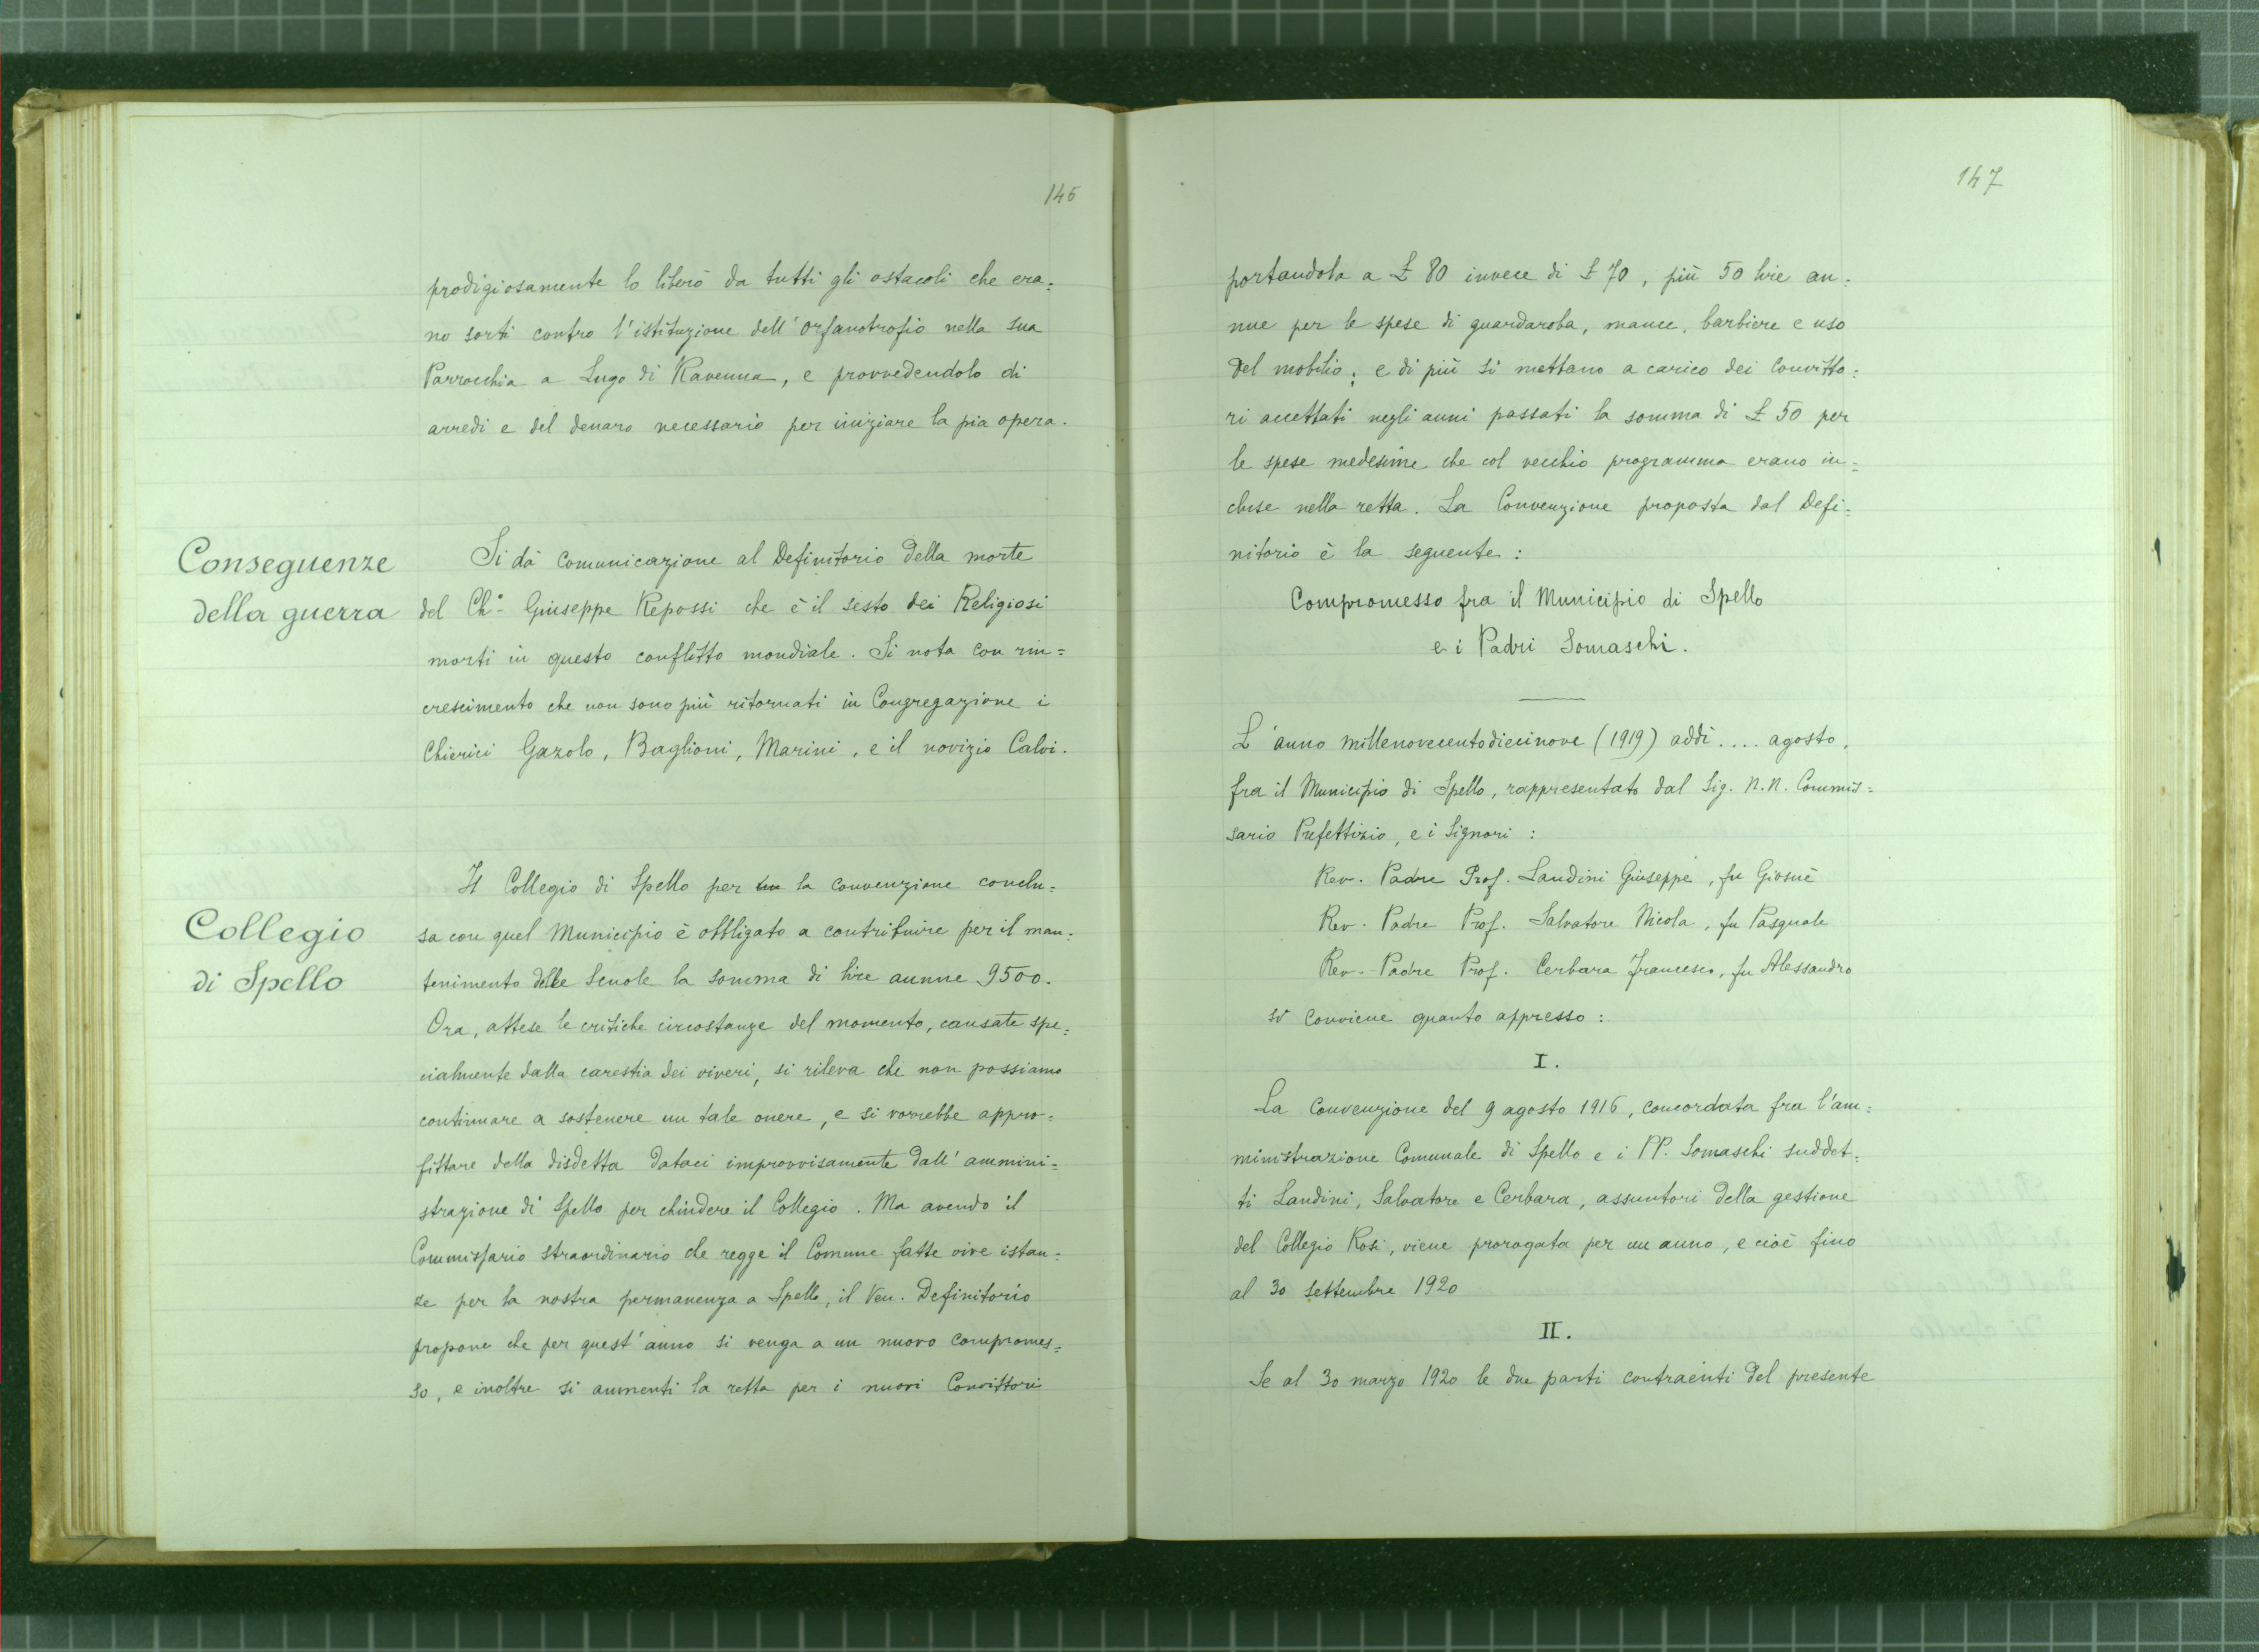 146
prodigiosamente lo liberò da tutti gli ostacoli che era=
no sorti contro l'istituzione dell'Orfanotrofio nella sua
Parrocchia a Lugo di Ravenna, e provvedendolo di
arredi e del denaro necessario per iniziare la pia opera.
Conseguenze
della guerra
Si dà comunicazione al Definitorio della morte
del Ch.º Giuseppe Repossi che è il sesto dei Religiosi
morti in questo conflitto mondiale. Si nota con rin=
crescimento che non sono più ritornati in Congregazione i
Chierici Gazolo, Baglioni, Marini, e il novizio Calvi.
Collegio
di Spello
Il Collegio di Spello per la convenzione conclu=
sa con quel Municipio è obbligato a contribuire per il man=
tenimento delle Scuole la somma di lire annue 9500.
Ora, attese le critiche circostanze del momento, causate spe=
cialmente dalla carestia dei viveri, si rileva che non possiamo
continuare a sostenere un tale onere, e si vorrebbe appro=
fittare della disdetta dataci improvvisamente dall'ammini=
strazione di Spello per chiudere il Collegio. Ma avendo il
Commissario straordinario che regge il Comune fatte vive istan=
ze per la nostra permanenza a Spello, il Ven. Definitorio
propone che per quest'anno si venga a un nuovo compromes=
so, e inoltre si aumenti la retta per i nuovi Convittori
147
portandola a £ 80 invece di £ 70, più 50 lire an=
nue per le spese di guardaroba, mance, barbiere e uso
del mobilio; e di più si mettano a carico dei Convitto=
ri accettati negli anni passati la somma di £ 50 per
le spese medesime che col vecchio programma erano in=
cluse nella retta. La Convenzione proposta dal Defi=
nitorio è la seguente:
Compromesso fra il Municipio di Spello
e i Padri Somaschi.
L'anno millenovecentodiecinove (1919) addì .... agosto,
fra il Municipio di Spello, rappresentato dal Sig. N.N. Commis=
sario Prefettizio, e i Signori:
Rev. Padre Prof. Landini Giuseppe, fu Giosuè
Rev. Padre Prof. Salvatore Nicola, fu Pasquale
Rev. Padre Prof. Cerbara Francesco, fu Alessandro
si conviene quanto appresso:
I.
La Convenzione del 9 agosto 1916, concordata fra l'am=
ministrazione Comunale di Spello e i PP. Somaschi suddet=
ti Landini, Salvatore e Cerbara, assuntori della gestione
del Collegio Rosi, viene prorogata per un anno, e cioè fino
al 30 settembre 1920
II.
Se al 30 marzo 1920 le due parti contraenti del presente